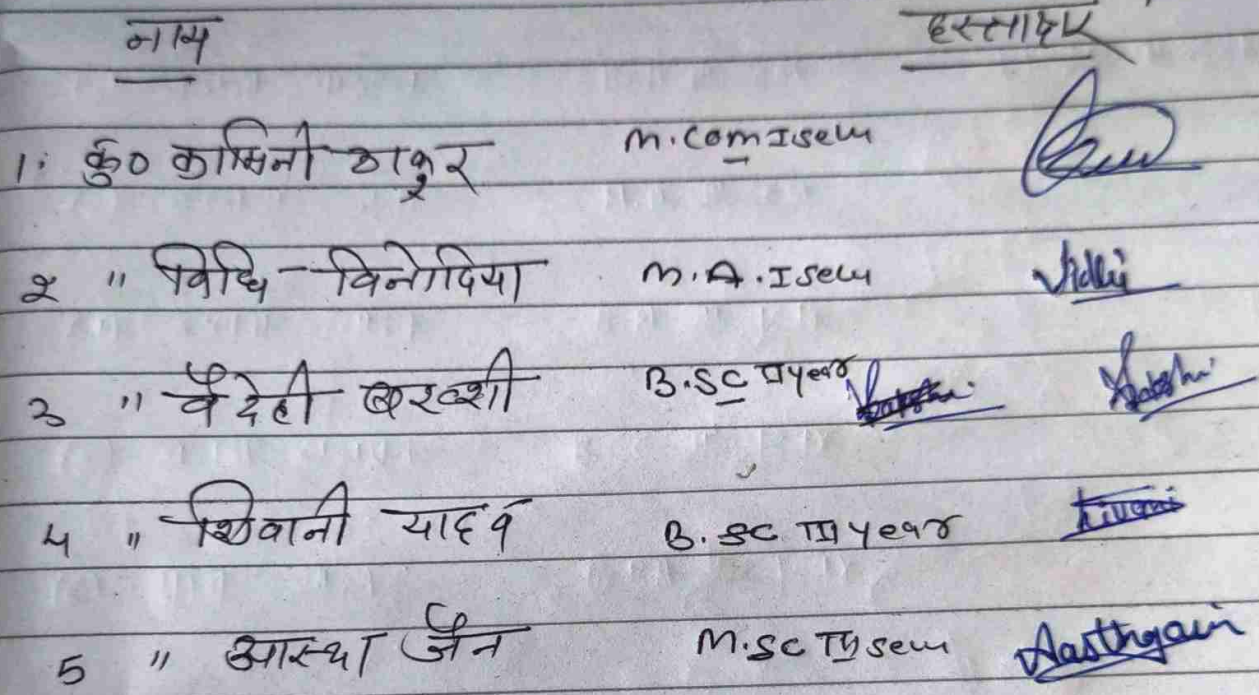 नाम हस्ताक्षर
1. कु० कामिनी ठाकुर M.Com I sem
2 " विधि विनोदिया M.A. I sem Vidhi
3 " वैदेही बख्शी B.SC II year Bakshi
4 " शिवानी यादव B.SC III year
5 " आस्था जैन M.SC III sem Aasthajain